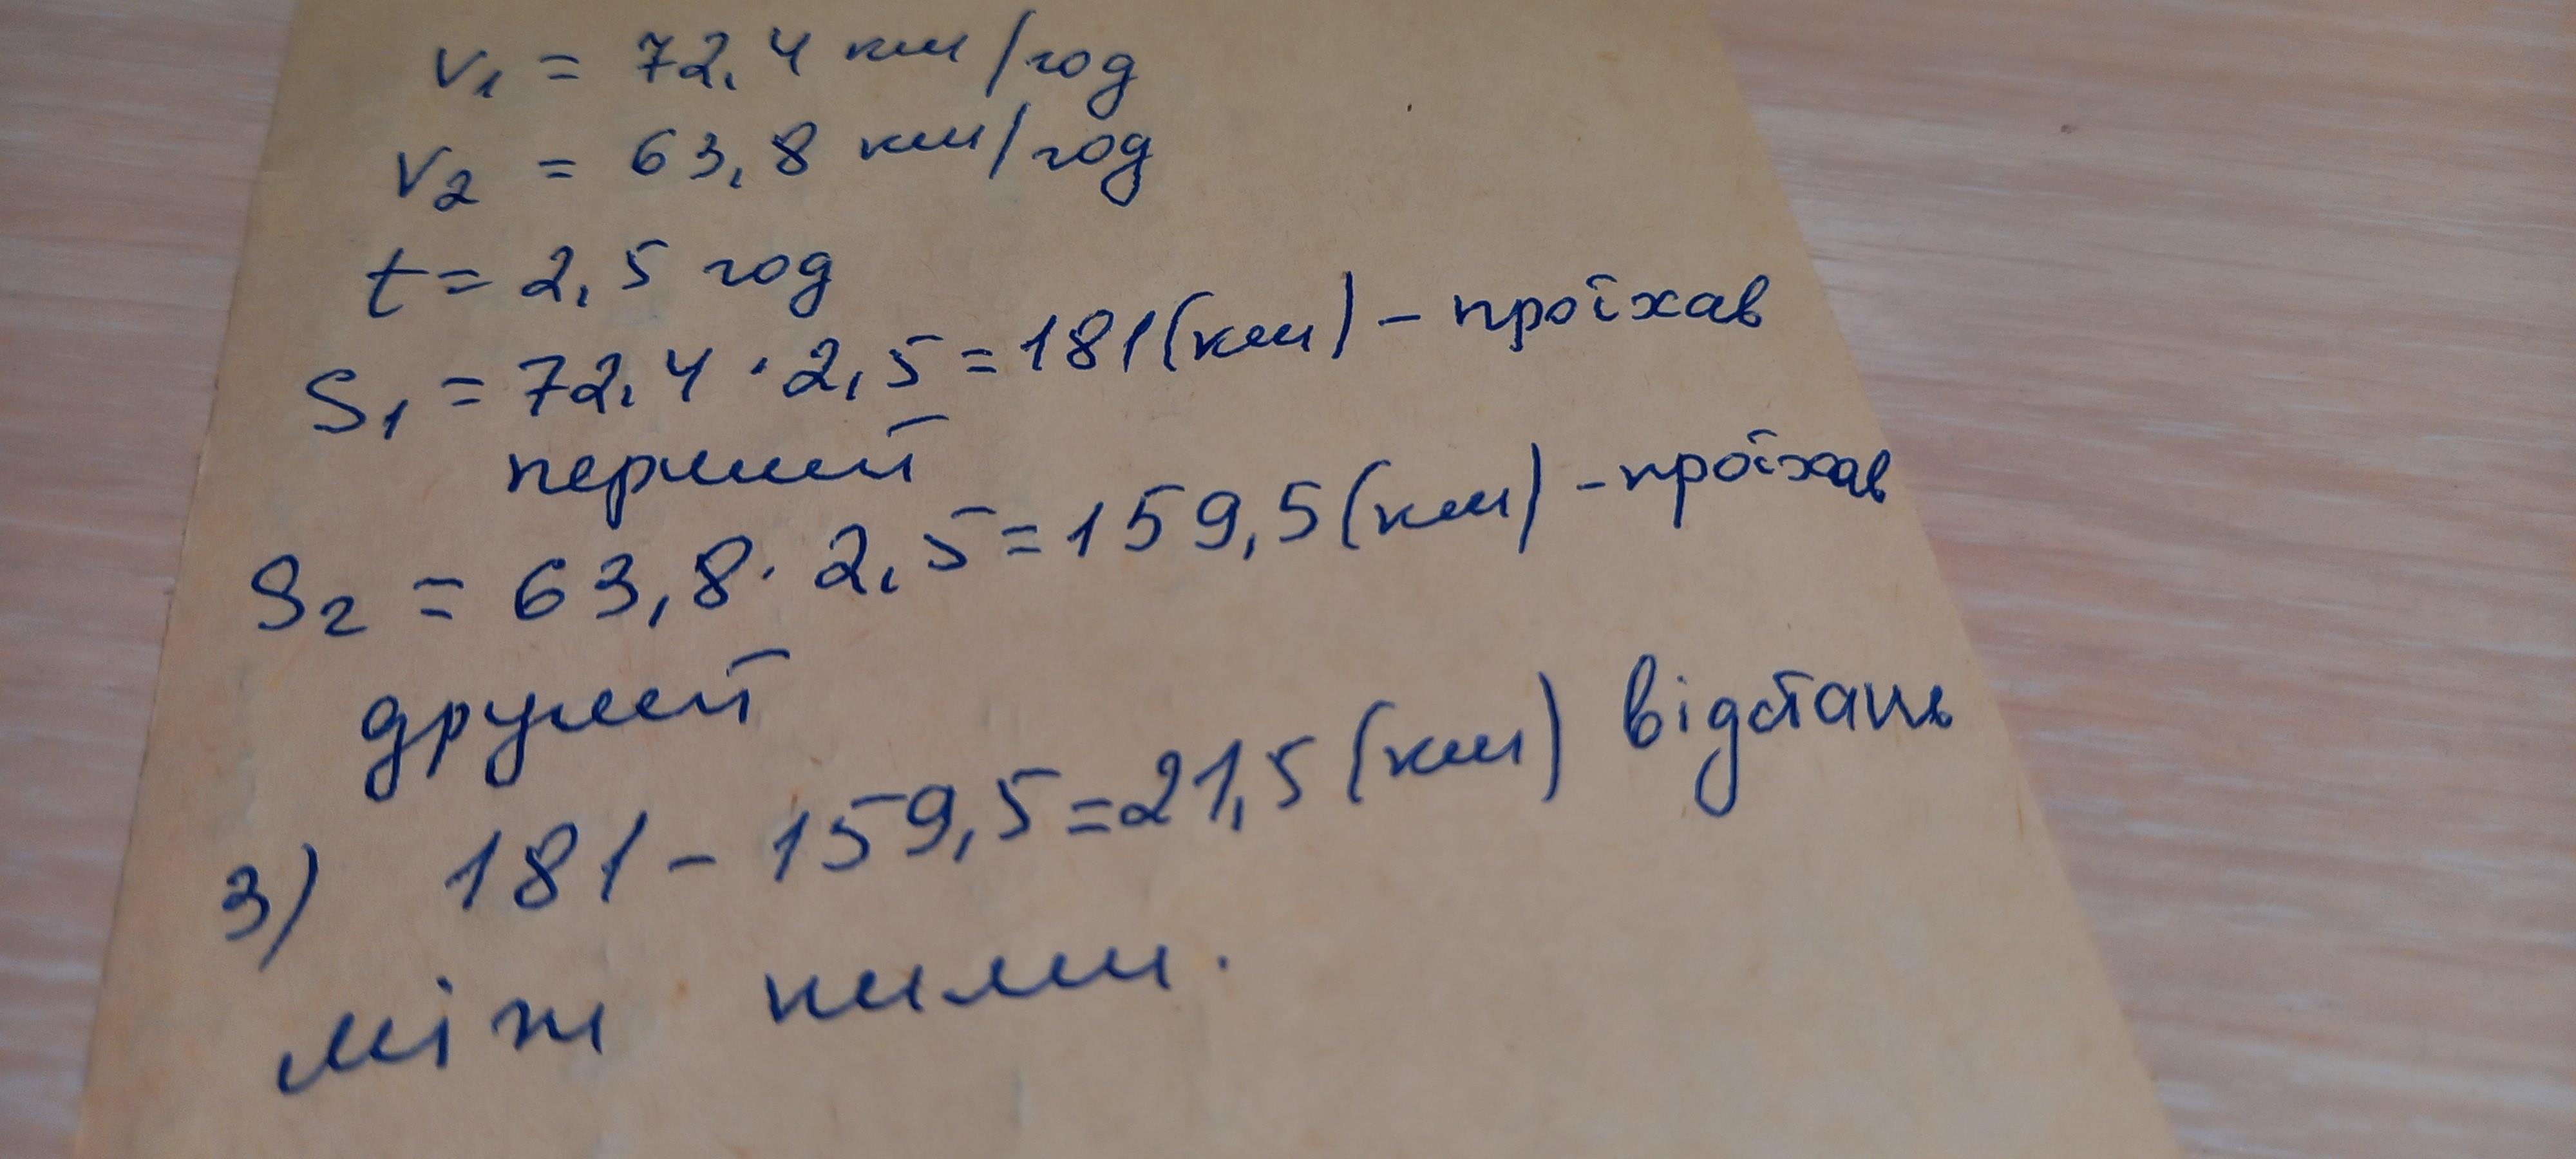 V₁ = 72,4 км/год
V₂ = 63,8 км/год
t = 2,5 год
S₁ = 72,4 · 2,5 = 181 (км) - проїхав
перший
S₂ = 63,8 · 2,5 = 159,5 (км) - проїхав
другий
3) 181 - 159,5 = 21,5 (км) відстань
між ними.